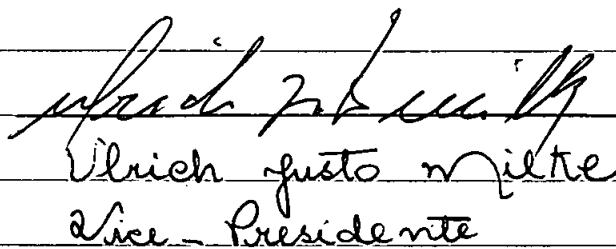 Ulrich Justo Milke
Vice - Presidente